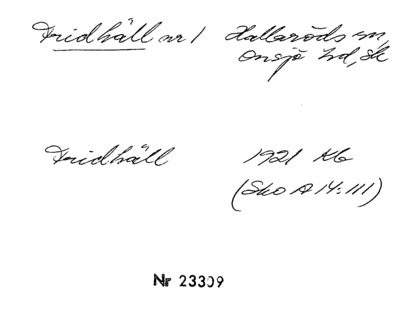 Fridhäll nr 1 Hallaröds sn,
Onsjö hd, Sk
Fridhäll 1921 Kb
(Sko A 14:111)
Nr 23309